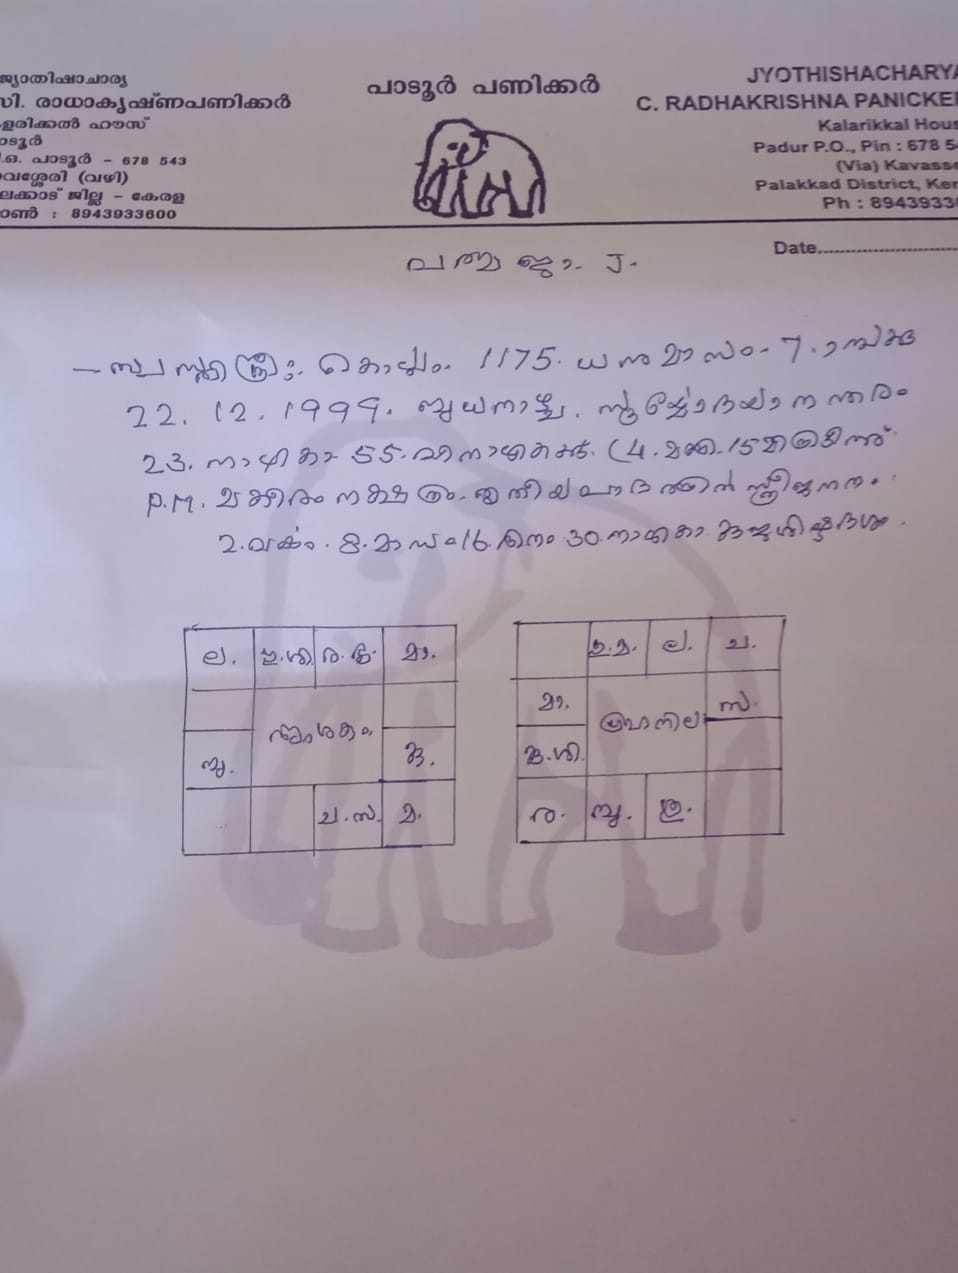 ജ്യോതിഷാചാര്യ
സി. രാധാകൃഷ്ണപണിക്കർ
കളരിക്കൽ ഹൗസ്
പാടൂർ
പി.ഒ. പാടൂർ - 678 543
കാവശ്ശേരി (വഴി)
പാലക്കാട് ജില്ല - കേരള
ഫോൺ : 8943933600
പാടൂർ പണിക്കർ
JYOTHISHACHARYA
C. RADHAKRISHNA PANICKER
Kalarikkal House
Padur P.O., Pin : 678 54
(Via) Kavasse
Palakkad District, Ker
Ph : 89439336
Date
പത്മജാ. J.
കൊല്ലം. 1175. ധനുമാസം. 7.
22. 12. 1999. ബുധനാഴ്ച. സൂര്യോദയാനന്തരം
23. നാഴിക 55. വിനാഴികക്ക്. (4. മണി. 15 മിനിട്ടിന്ന്
P.M. മകീരം നക്ഷത്രം. സ്ത്രീജനനം.
2. വർഷം. 8. മാസം. 16. ദിനം. 30. നാഴിക
ല. ഗു.ശി ര. മാ.
അംശകം
സൂ. കു.
ച.സ. മ.
ഗു.മ. ല. ച.
മാ. ഗ്രഹനില സ.
കു.ശി.
ര. സൂ. ശു.